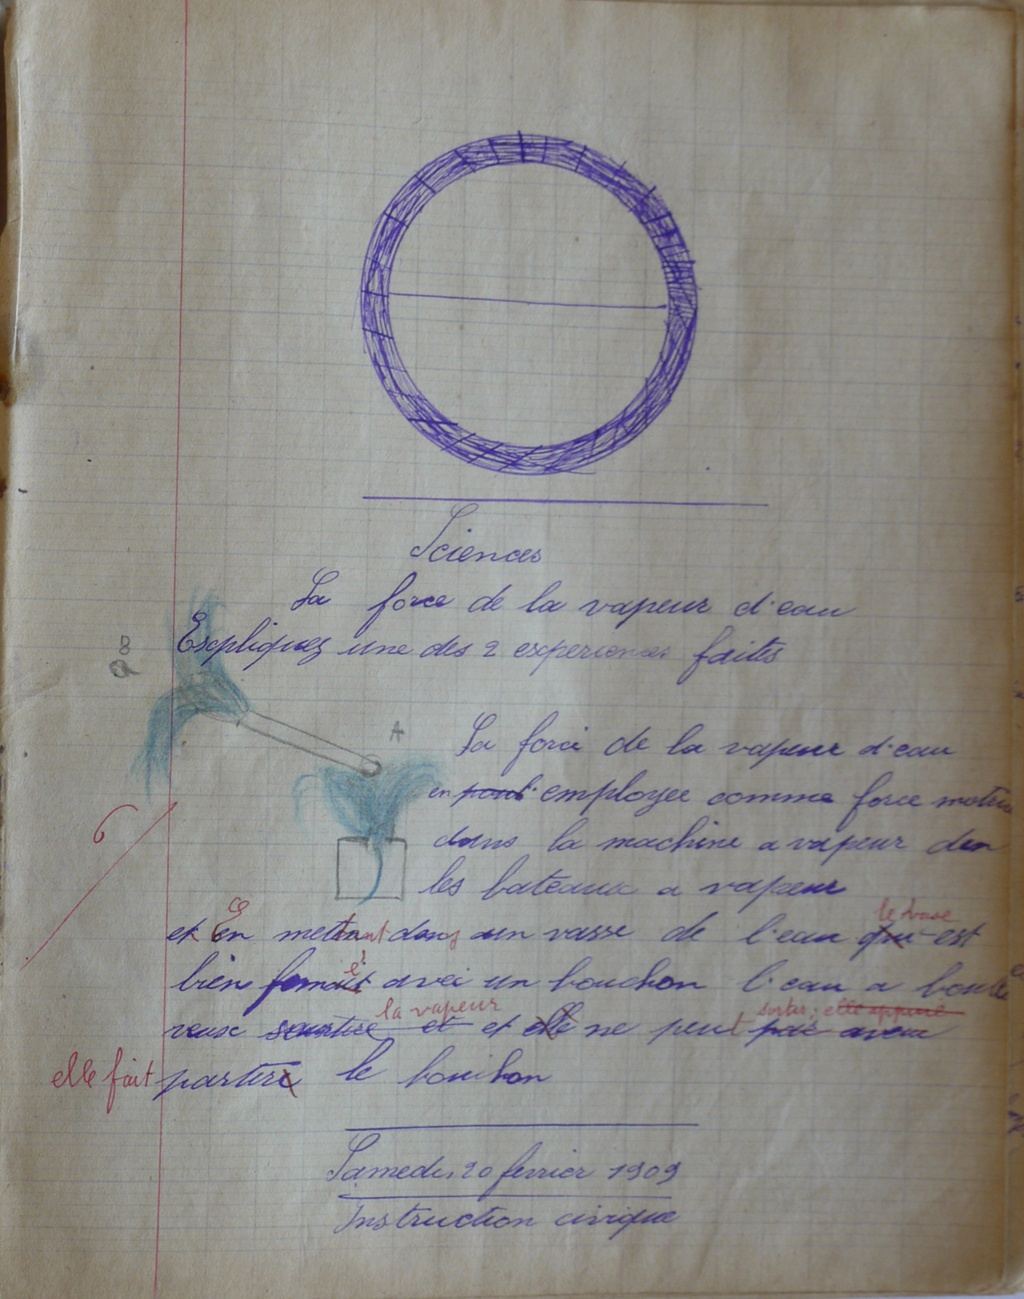 Sciences
La force de la vapeur d'eau
Expliquez une des 2 experiences faites
B
A
La force de la vapeur d'eau
en employee comme force motrice
6
dans la machine a vapeur dan
les bateaux a vapeur
le vase
et En mettant dans un vasse de l'eau qui est
bien avec un bouchon l'eau a
la vapeur sortir, elle appuie
veux sourtire et et elle ne peut pas
elle fait partire le bouchon
Samedi 20 fevrier 1909
Instruction civique